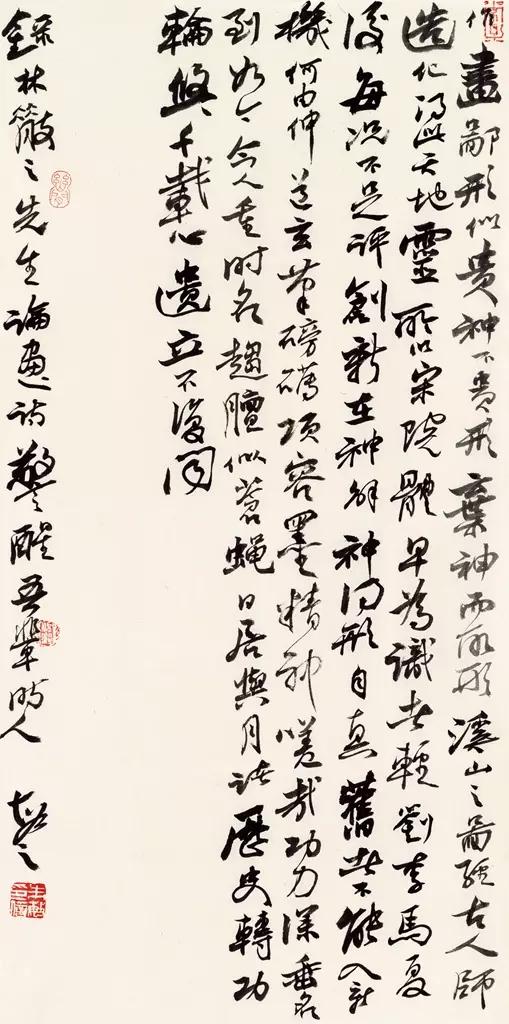 作畫鄙形似貴神不貴形棄神而取形溪山之圖經古人師
造化得此天地靈所以宋院體早為識者輕劉李馬夏
後每況不足評創新在神解神同形自真舊者不能入新
機何由伸道玄筆磅礡項容墨精神嗟哉功力深垂名
到如今今人重時名趨膻似蒼蠅日居與月諸歷史轉功
輪悠悠千載心遺立不復同
錄林散之先生論畫詩警醒吾輩時人